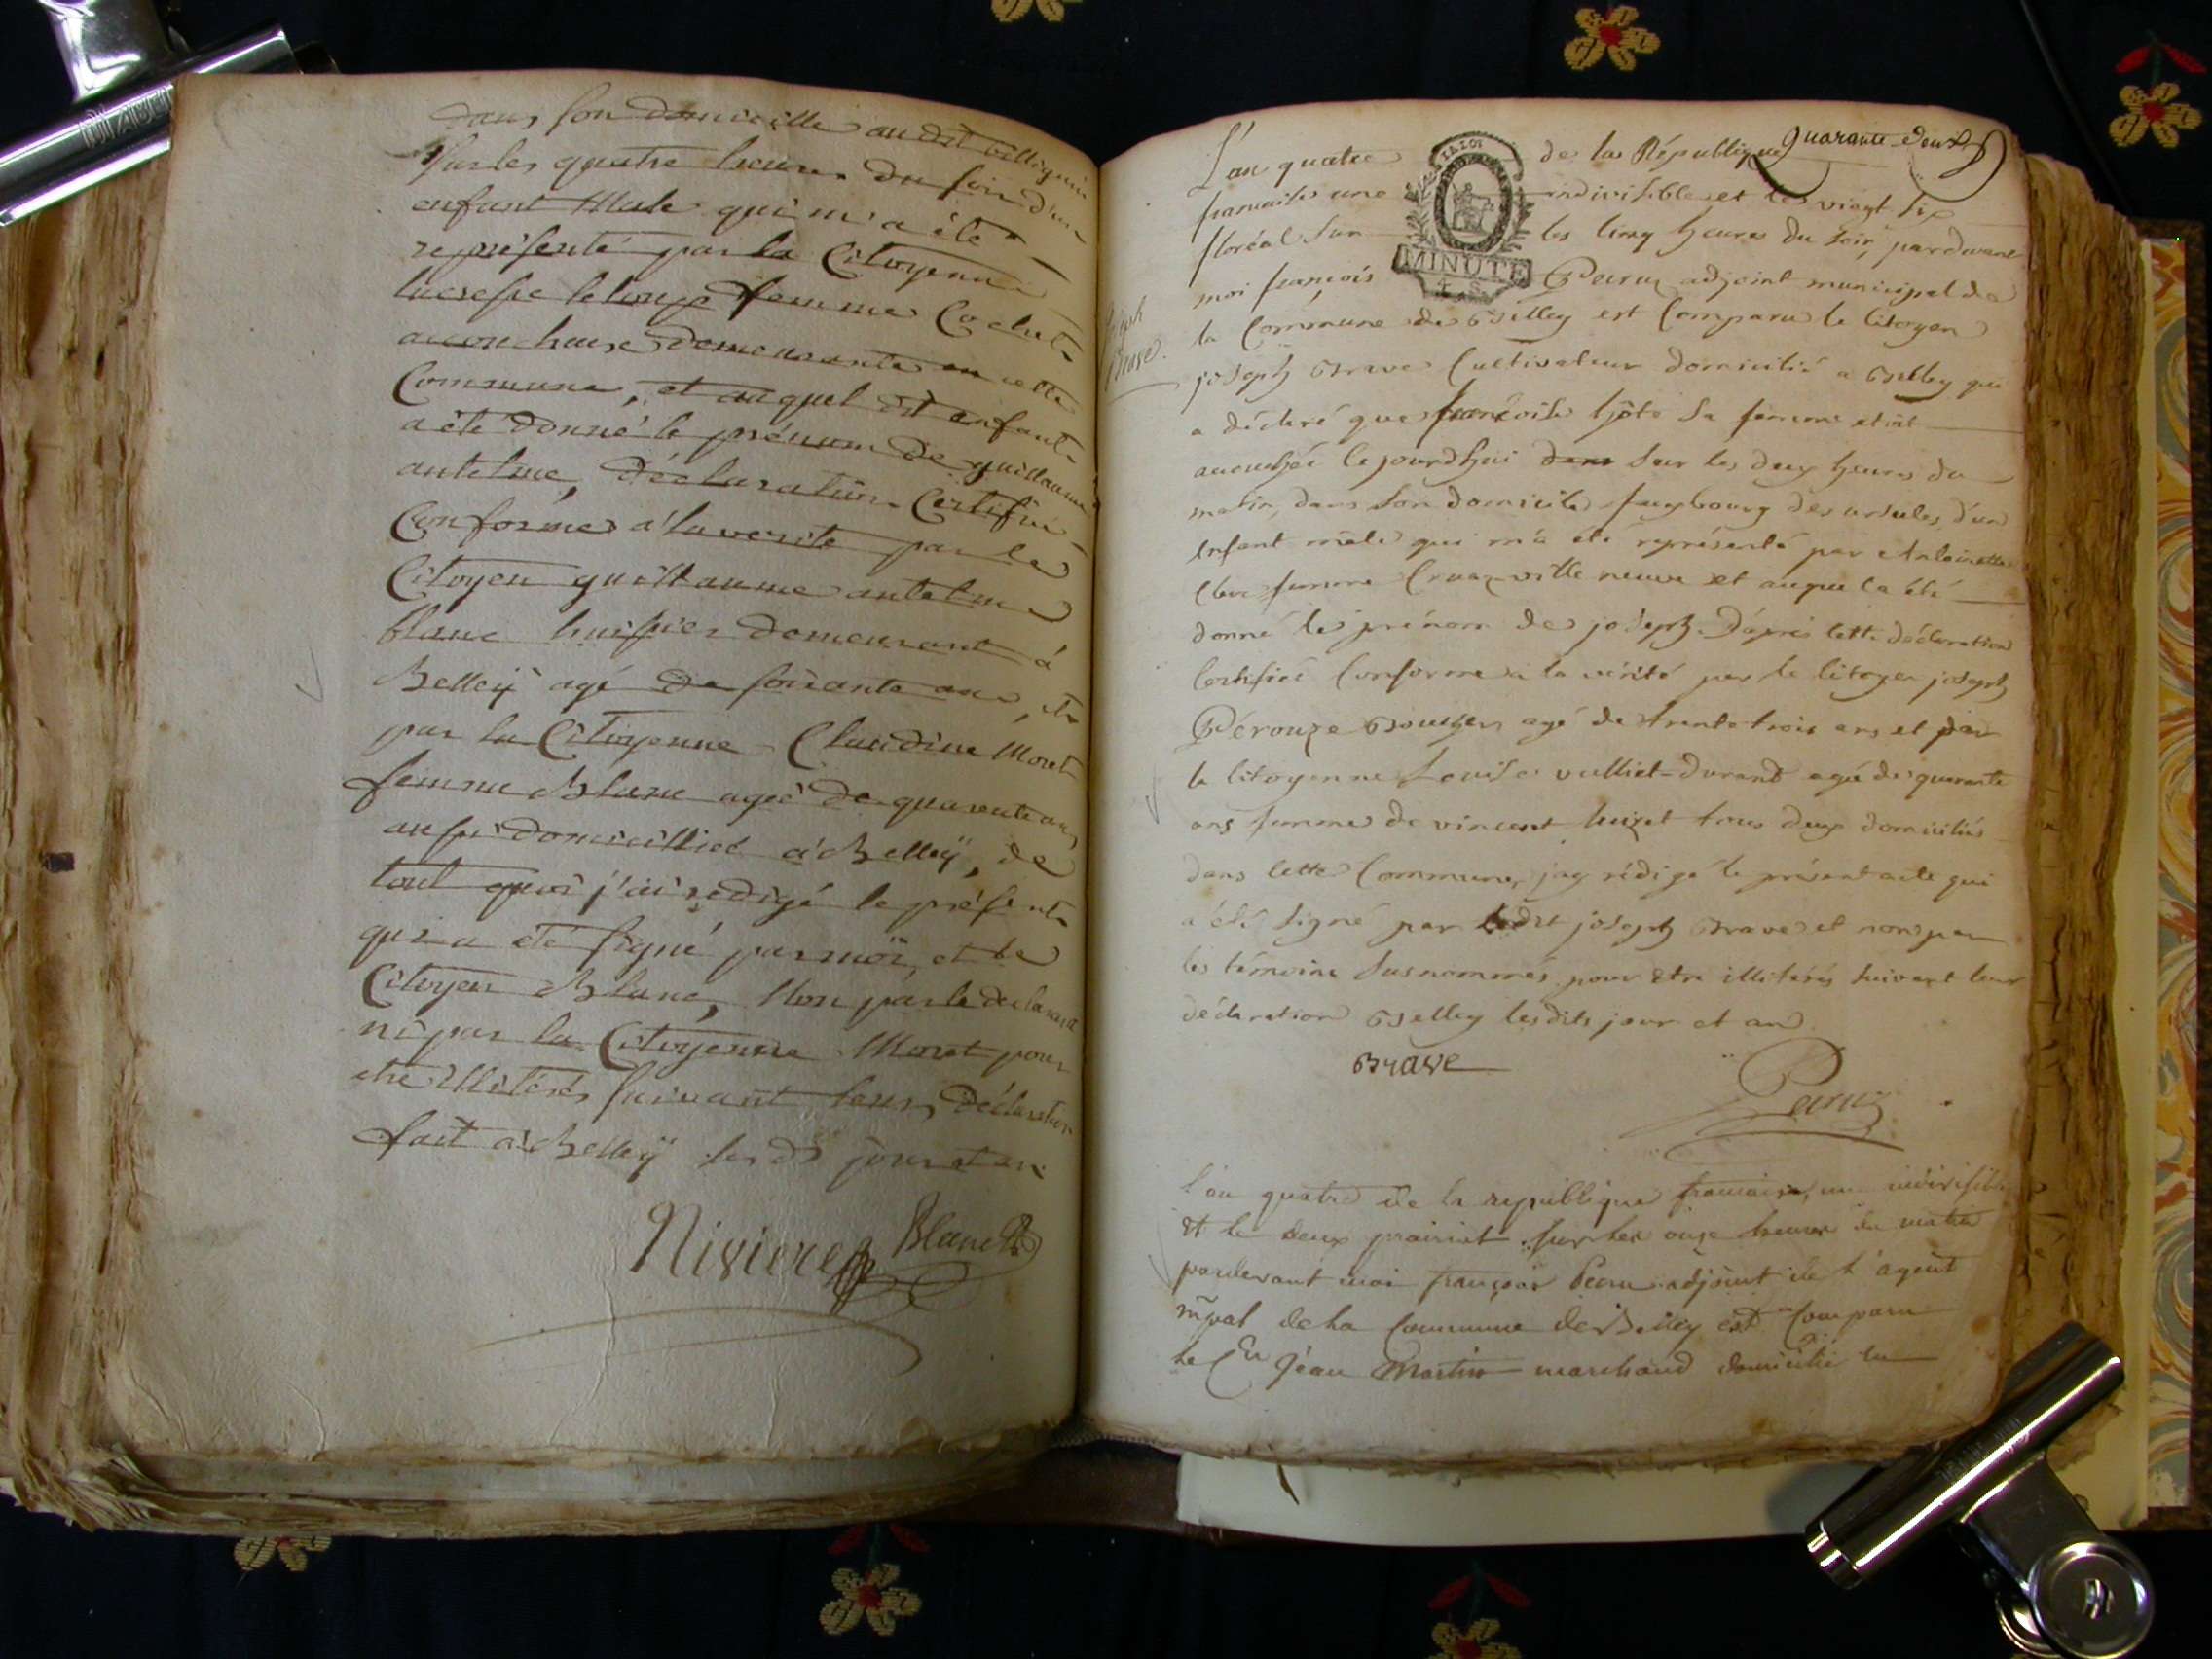 dans son domicille au dit
sur les quatre heures du soir d'un
enfant Male qui m'a été
représenté par la Citoyenne
femme Cochet
accoucheuse demeurante en cette
Commune, et auquel dit enfant
a été donné le prénom de guillaume
antelme, déclaration Certifiée
Conforme a la verité par le
Citoyen guillaume antelme
blanc huissier demeurant à
Belleÿ agé de soixante ans, et
par la Citoyenne Claudine Moret
femme Blanc ageé de quarente ans
aussi domicilliée à Belleÿ, de
tout quoi j'ai redigé le présent
qui a été signé par moi, et le
Citoyen Blanc, Non par le declarant
ni par la Citoyenne Moret pour
etre illiterés suivant leurs déclaration
fait à Belleÿ les ds jour et an
Niviere Blanc
Quarante deux
L'an quatre de la République
francaise une indivisible et le vingt six
floréal Sur les cinq heures du soir, pardevant
MINUTE
moi françois Peruz adjoint municipal de
la Commune de Belley est Comparu le Citoyen
joseph Brave
joseph Brave Cultivateur domicilié a Belley qui
a déclaré que françoise hôte sa femme etait
accouchée le jourd'hui dans sur les deux heures du
matin, dans son domicile fauxbourg des ursules, d'un
Enfant mâle qui m'a été représenté par Antoinette
femme ville neuve et auquel a été
donné le prénom de joseph. D'après cette déclaration
Certifiée Conforme à la vérité par le Citoyen joseph
Pérouze Boucher agé de trente trois ans et par
la Citoyenne Louise vulliet-Durand agée de quarante
ans femme de vincent huget tous deux domiciliés
dans cette Commune, j'ay rédigé le présent acte qui
a été signé par ledit joseph Brave et non par
les témoins susnommés pour être illitérés suivant leur
déclaration Belley lesdits jour et an
Brave
Peruz
l'an quatre de la republique francaise, une indivisible
et le deux prairial sur les onze heures du matin
pardevant moi françois Peruz adjoint de l'agent
mpal de la Commune de Belley est Comparu
le Cen Jean Martin marchand domicilié en